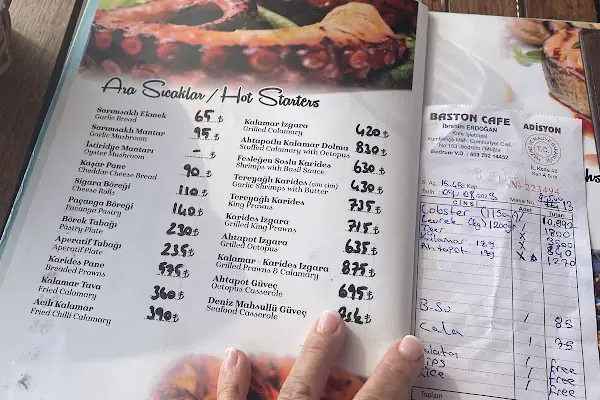 Ara Sıcaklar / Hot Starters
Sarımsaklı Ekmek 65 ₺
Garlic Bread
Sarımsaklı Mantar 95 ₺
Garlic Mushroom
İstiridye Mantarı - ₺
Oyster Mushroom
Kaşar Pane 90 ₺
Cheddar Cheese Bread
Sigara Böreği 110 ₺
Cheese Rolls
Paçanga Böreği 140 ₺
Paçanga Pastry
Börek Tabağı 230 ₺
Pastry Plate
Aperatif Tabağı 235 ₺
Aperatif Plate
Karides Pane 575 ₺
Breaded Prawns
Kalamar Tava 360 ₺
Fried Calamary
Acılı Kalamar 390 ₺
Fried Chilli Calamary
Kalamar Izgara 420 ₺
Grilled Calamary
Ahtapotlu Kalamar Dolma 830 ₺
Stuffed Calamary with Octopus
Fesleğen Soslu Karides 630 ₺
Shrimps with Basil Sauce
Tereyağlı Karides (çim çim) 430 ₺
Garlic Shrimps with Butter
Tereyağlı Karides 735 ₺
King Prawns
Karides Izgara 715 ₺
Grilled King Prawns
Ahtapot Izgara 635 ₺
Grilled Octopus
Kalamar - Karides Izgara 875 ₺
Grilled Prawns & Calamary
Ahtapot Güveç 695 ₺
Octopus Casserole
Deniz Mahsullü Güveç
Seafood Casserole
BASTON CAFE ADİSYON
İbrahim ERDOĞAN
Kafe İşletmesi
Kumbahçe Mah. Cumhuriyet Cad.
No:153 Bodrum / Muğla
Bodrum V.D.: 603 702 14452
No 223494
Tarih
CİNSİ Adet Tutarı
Lobster 10,892
Levrek 1 1800
Kalamar 840
Ahtapot 1270
B.Su 1 85
Cola 1 75
free
free
free
Toplam